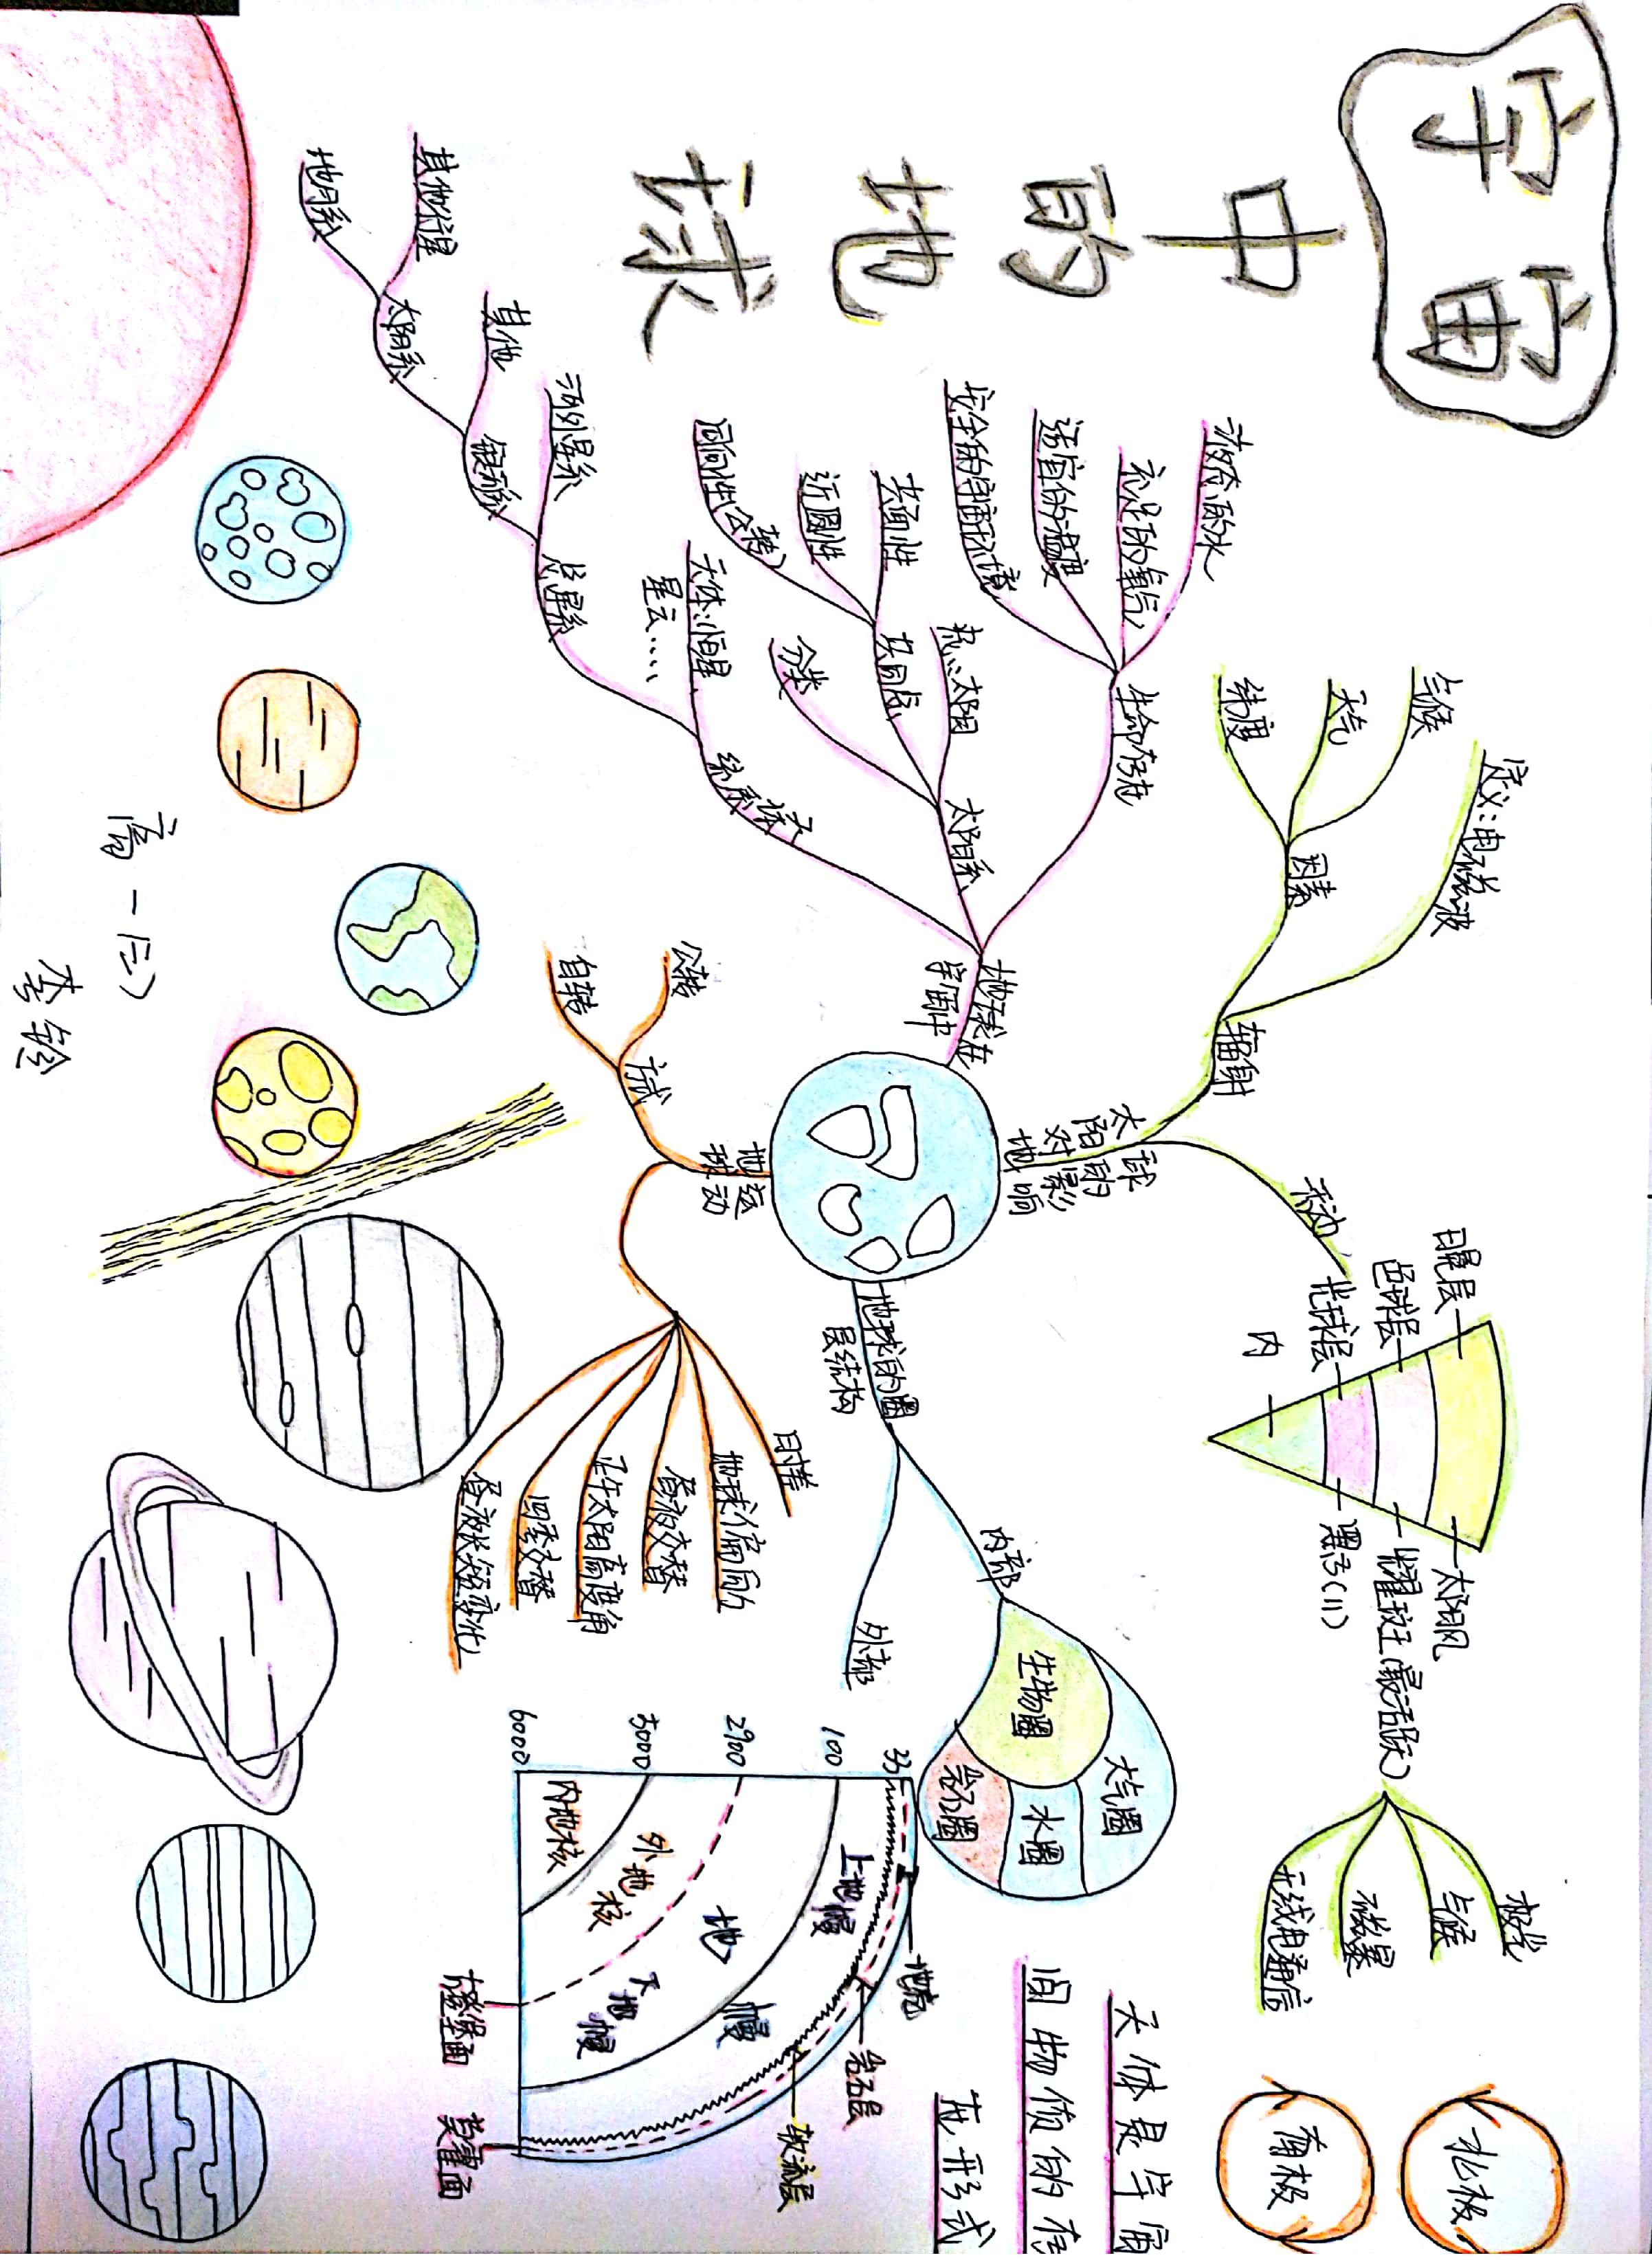 宇宙
中的地球
地球在
宇宙中
生命存在
液态的水
充足的氧气
适宜的温度
安全的宇宙环境
太阳系
热:太阳
共同点
共面性
近圆性
同向性(公转)
分类
天体:恒星,
星云……
总星系
河外星系
银河系
其他
太阳系
其他行星
地月系
太阳
对地
球的
影响
辐射
定义:电磁波
因素
气候
天气
纬度
活动
日冕层
色球层
光球层
内
太阳风
耀斑(最活跃)
黑子(11)
极光
气候
磁暴
无线电通信
地球的圈
层结构
内部
外部
大气圈
生物圈
水圈
岩石圈
33
100
2900
5000
6000
地壳
岩石层
软流层
上地幔
地幔
下地幔
外地核
内地核
古登堡面
莫霍面
地球
运动
方式
公转
自转
时差
地球偏向力
昼夜交替
正午太阳高度角
四季交替
昼夜长短变化
北极
南极
天体是宇宙
间物质的存
在形式
高一(三)
李铃